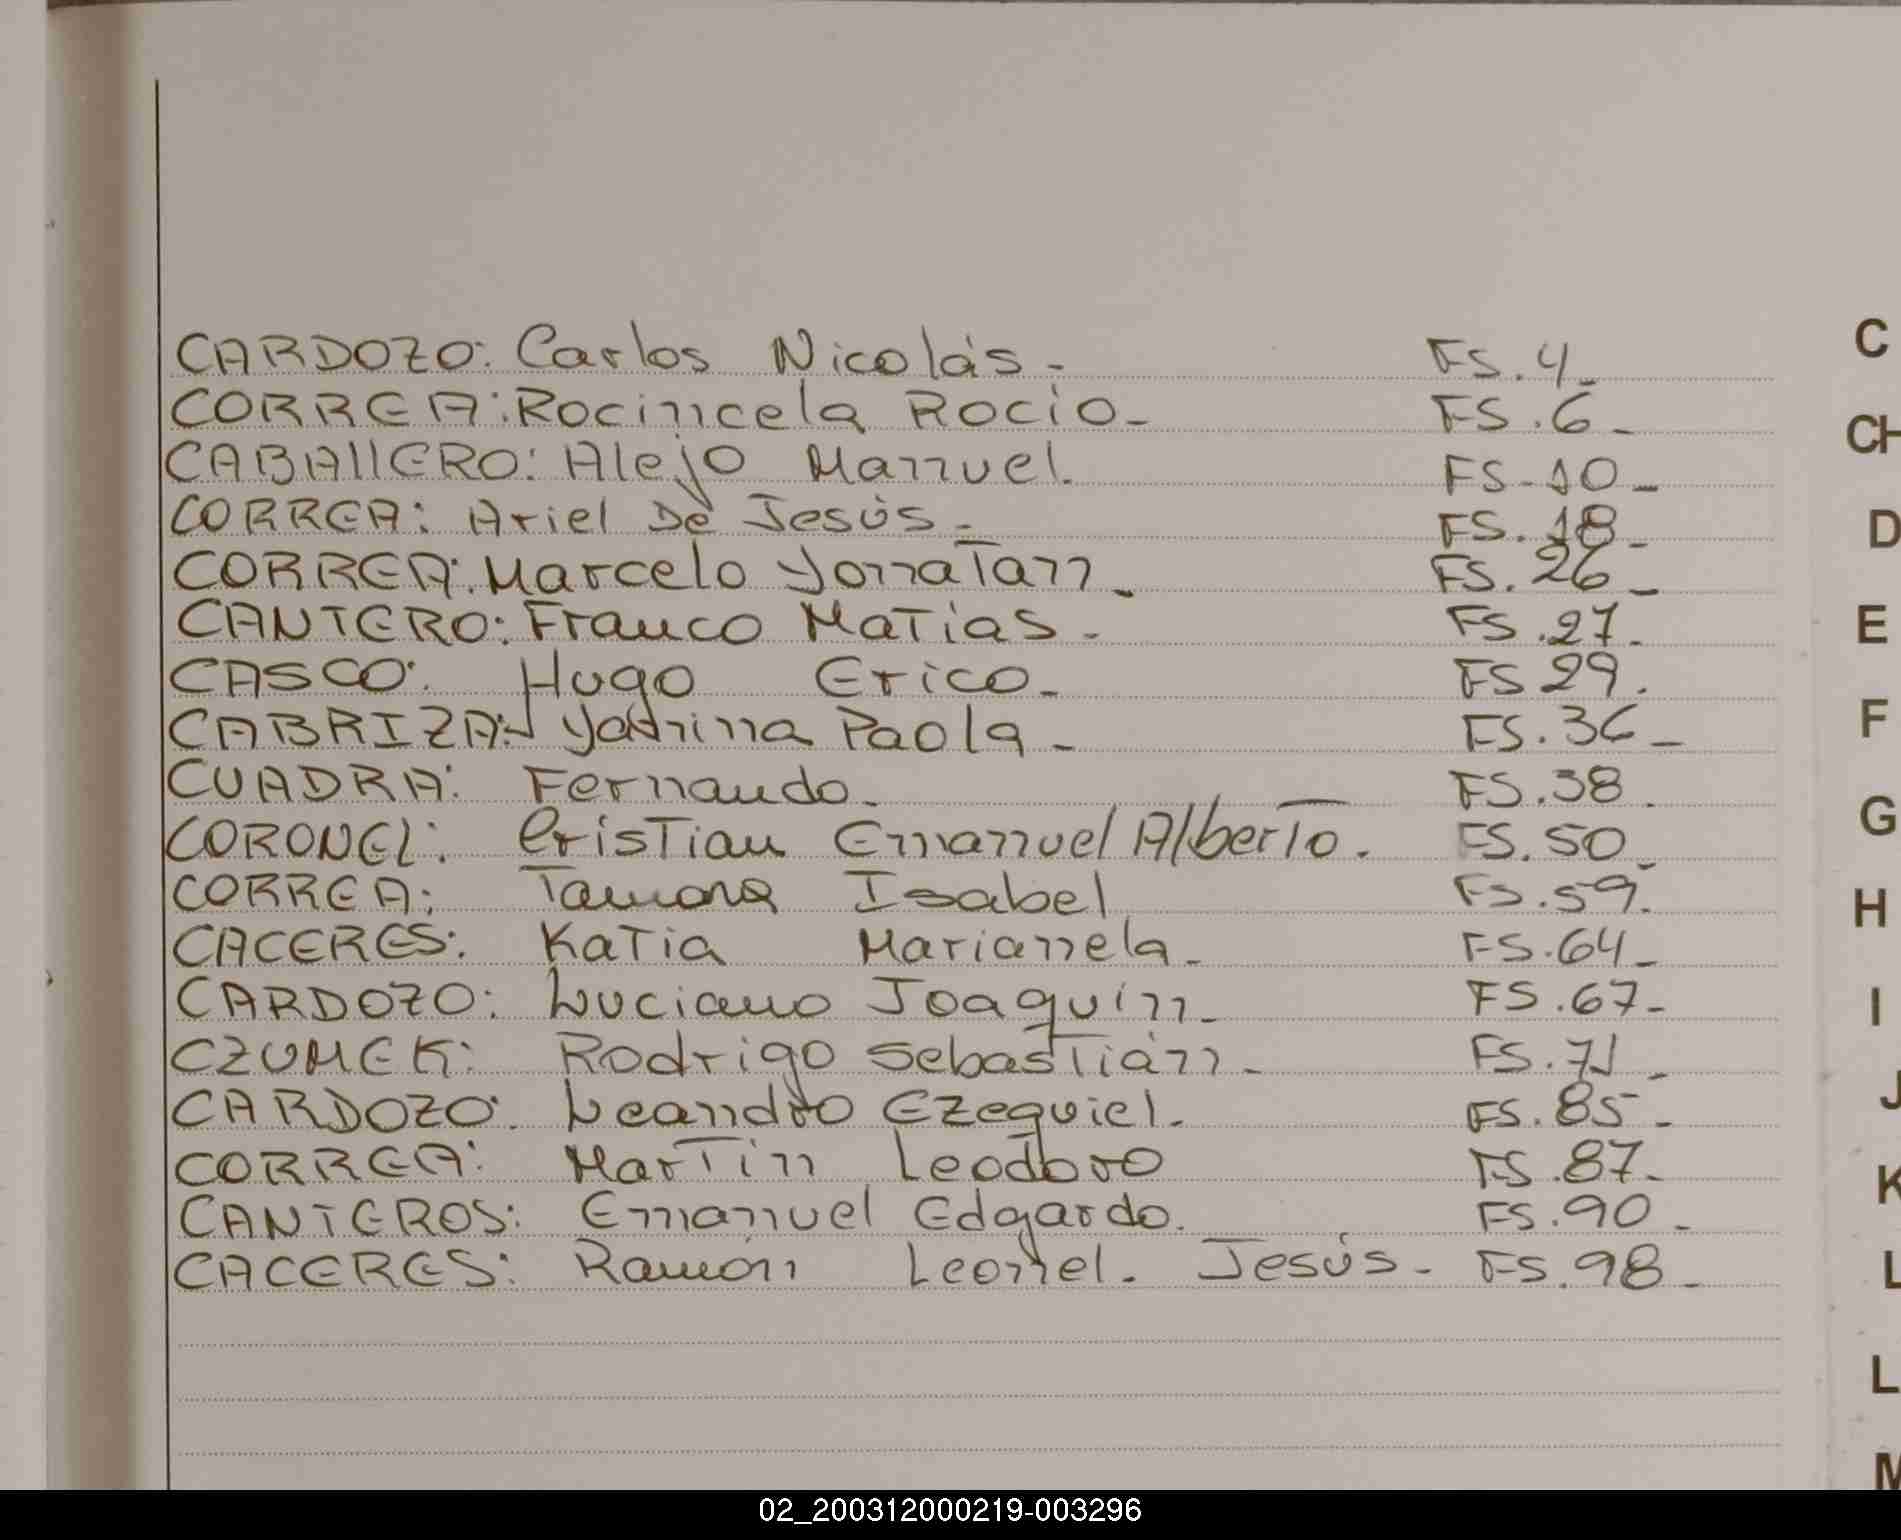 CARDOZO: Carlos Nicolás - FS. 4 -
CORREA: Rocincela Rocio - FS. 6 -
CABAllERO: Alejo Manuel. FS - 10 -
CORREA: Ariel De Jesús - FS. 18 -
CORREA: Marcelo Yonatan - FS. 26 -
CANTERO: Franco Matias - FS. 27 -
CASCO: Hugo Erico - FS 29.
CABRIZA: Paola - FS. 36 -
CUADRA: Fernando. FS. 38.
CORONEL: Cristian Emanuel Alberto. FS. 50 -
CORREA: Tamara Isabel FS. 59.
CACERES: Katia Marianela - FS. 64 -
CARDOZO: Luciano Joaquín - FS. 67 -
CZUMEK: Rodrigo Sebastián - FS. 71 -
CARDOZO: Leandro Ezequiel. FS. 85 -
CORREA: Martín Leodoro FS. 87 -
CANTEROS: Emanuel Edgardo. FS. 90 -
CACERES: Ramón Leonel. Jesús - FS. 98 -
C
CH
D
E
F
G
H
I
J
K
L
L
M
02_200312000219-003296